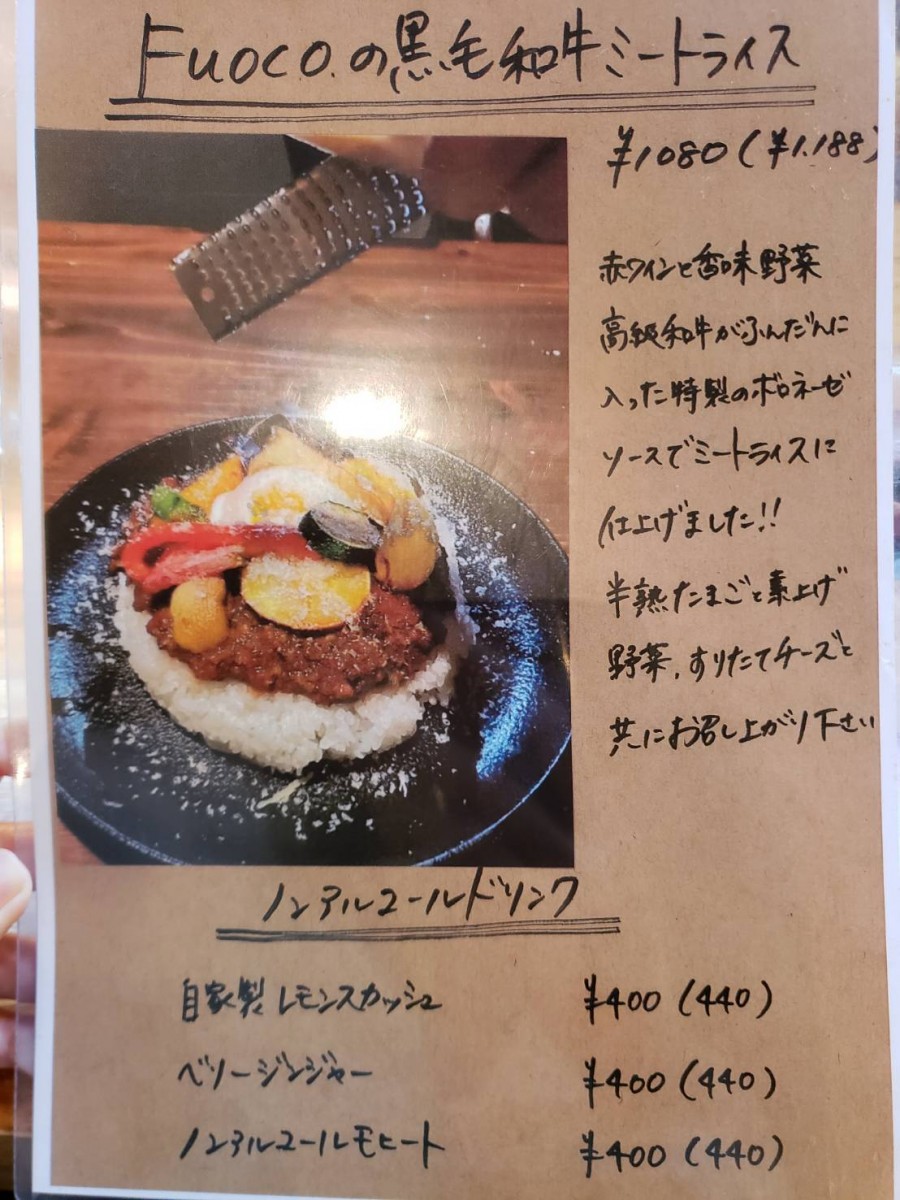 Fuoco.の黒毛和牛ミートライス
¥1080(¥1.188)
赤ワインと香味野菜
高級和牛がふんだんに
入った特製のボロネーゼ
ソースでミートライスに
仕上げました!!
半熟たまごと素上げ
野菜、すりたてチーズと
共にお召し上がり下さい
ノンアルコールドリンク
自家製レモンスカッシュ ¥400(440)
ベリージンジャー ¥400(440)
ノンアルコールモヒート ¥400(440)